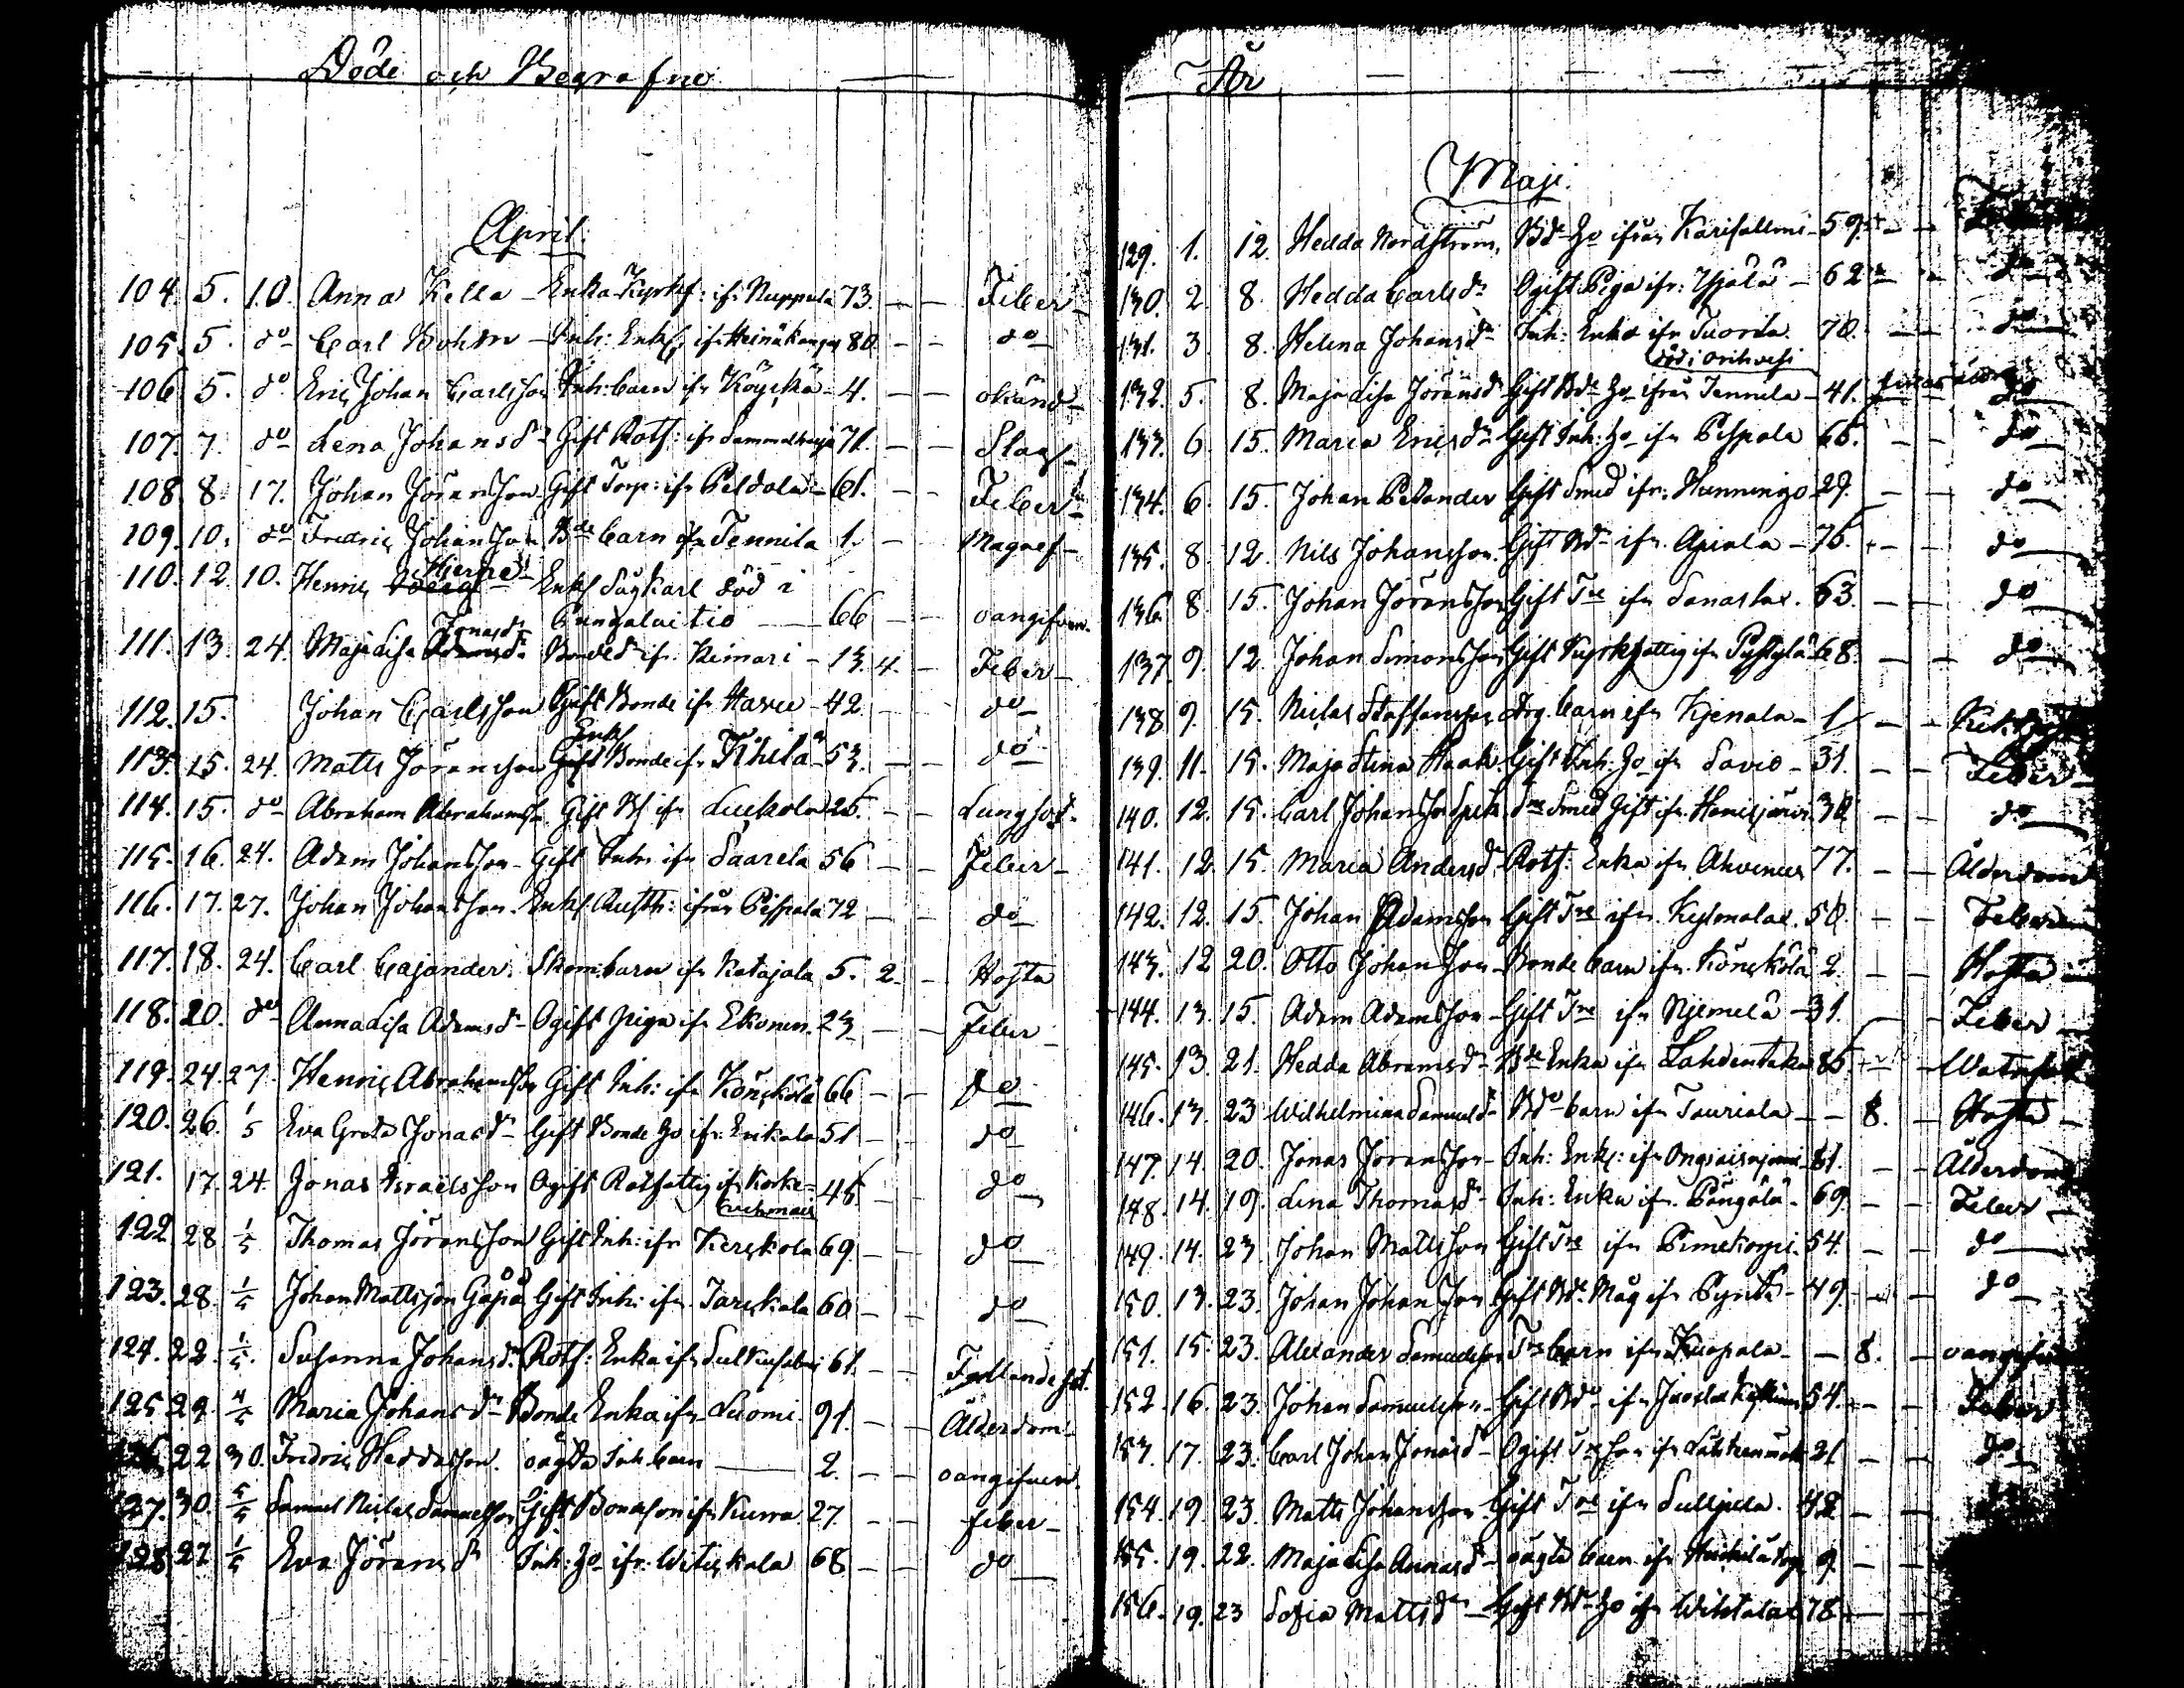 Döde och Begrafne
April.
104. 5. 10. Anna Kella - Enka Kyrkf: ifr Nuppula 73. - - Feber -
105. 5. do Carl Bohm - Inh: Enkl: ifr Heinäkangas 80. - - do
106. 5. do Eric Johan Carlsson Inh: barn ifr Köyckä - 4. - - okänd -
107. 7. do Lena Johansdr Gift Rotf: ifr 71. - - Slag -
108. 8. 17. Johan Jöransson Gift Torp: ifr Peldola - 61. - - Feber
109. 10. do Fredric Johansson Bde barn ifr Tennilä 1. - Magref -
Hjerpe
110. 12. 10. Henric Enkl Sågkarl död i
Pungalaitio - 66 - - oangifven.
Jonasdr
111. 13. 24. Maja Lisa Adamsdr Bondedr ifr Keinari - 13. 4. - Feber -
112. 15. Johan Carlsson Gift Bonde ifr Harvu - 42. - do
Enkl
113. 15. 24. Matts Jöransson Gift Bonde ifr Kihilä - 53. - - do
114. 15. do Abraham Abrahamss. Gift ifr Luckola 25. - - Lungsot.
115. 16. 24. Adam Johansson - Gift Inh: ifr Saarela 56 - - Feber -
116. 17. 27. Johan Johansson. Enkl. ifrån Pispala 72 - - do
117. 18. 24. Carl Cajander. Skom: barn ifr Katajala 5. 2. - Hosta
118. 20. do Anna Lisa Adamsdr Ogift piga ifr Ekonen. 23 - - Feber -
119. 24. 27. Henric Abrahamsson Gift Inh: ifr Könskölä 66 - - do
120. 26. 1/5 Eva Greta Jonasdr Gift Bonde ho ifr Erikala 51 - - do
121. 17. 24. Jonas Israelsson Ogift Rotfattig ifr Korke- 45. - - do
122. 28. 1/5 Thomas Jöransson Gift Inh: ifr Kerskola 69. - - do
123. 28. 1/5 Johan Mattsson Gåpå Gift Inh: ifr Tarskala 60 - - do
124. 22. 1/5. Susanna Johansdr. Rotf: Enka ifr 61. - - Fallandesot.
125. 29. 4/5 Maria Johansdr Bonde Enka ifr Luomi. 91. - - Ålderdom -
126. 22 30. Fredric Heddasson. oägta Inh. barn - 2. - - oangifven.
127. 30. 5/5 Samuel Niclas Samuelsson Gift Bondeson ifr Kurra 27 - - feber -
128. 27. 1/5 Eva Jöransdr Inh: ho ifr: Witiskala 68 - - do
År
Maji.
129. 1. 12. Hedda Nordström, Bde ho ifrån Karisalmi - 59. - -
130. 2. 8. Hedda Carlsdr Ogift Piga ifr: - 62 do
131. 3. 8. Helena Johansdr Inh: Enka ifr Tuorila. 70. - - do
död i Orihvesi
132. 5. 8. Maja Lisa Jöransdr Gift Bde ho ifrån Tennila - 41. do
133. 6. 15. Maria Ericsdr Gift Inh: ho ifr Pispala 65. - - do
134. 6. 15. Johan Petander Gift Smed ifr: Hunningo 29. - - do
135. 8. 12. Nils Johansson. Gift Bde ifr. Apiala - 76. - - do
136. 8. 15. Johan Jöransson Gift Tre ifr 63. - - do
137. 9. 12. Johan Simonsson Gift Kyrkfattig ifr 68. - - do
138. 9. 15. Niclas Staffansson barn ifr Kjenala - 1. - -
139. 11. 15. Maja Stina Haak. Gift Inh: ho ifr Savio - 31. - - Feber -
140. 12. 15. Carl Johansson Smed Gift ifr. 38 - - do
141. 12. 15. Maria Andersdr Rotf: Enka ifr Ahvenus 77. - - Ålderdom
142. 12. 15. Johan Adamsson Gift Tre ifr. 50. - - Feber
143. 12 20. Otto Johansson Bonde barn ifr. Könskölä 2. - - Hosta -
144. 13. 15. Adam Adamsson - Gift Tre ifr Njemelä - 31. - - Feber -
145. 13. 21. Hedda Abramsdr Bde Enka ifr Lahdentaka 85. - - Watusot
146. 13. 23 Wilhelmina Samuelsdr Bde barn ifr Tauriala - - 8. - Hosta -
147. 14. 20. Jonas Jöransson - Inh: Enkl: ifr 81. - - Ålderdom
148. 14. 19. Lena Thomasdr Inh: Enka ifr. Pångälä - 69 - - Feber -
149. 14. 23 Johan Mattsson Gift Tre ifr Pimekorpi. 54. - - do
150. 13. 23. Johan Johansson Gift Bde Måg ifr - 49. - - do
151. 15. 23. Alexander Samuelsson Tre barn ifr Kuopala - - 8. - oangifven
152. 16. 23. Johan Samuelsson - Gift Bde ifr 54. - - Feber
153. 17. 23. Carl Johan Jonas Ogift Tre son ifr 21 - - do
154. 19. 23. Matts Johansson. Gift Tre ifr Sullpula. 42 - -
155. 19. 22. Maja Lisa Annasdr - oägta barn ifr 9. - -
156. 19. 23 Sofia Mattsdr - Gift Bde ho ifr 78. - -